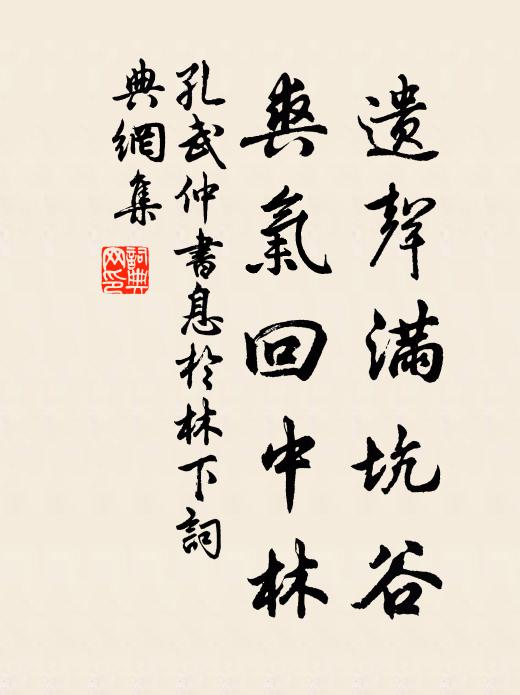 遗聲满坑谷
爽氣回中林
孔武仲書息於林下詞
典網集
詞典網印